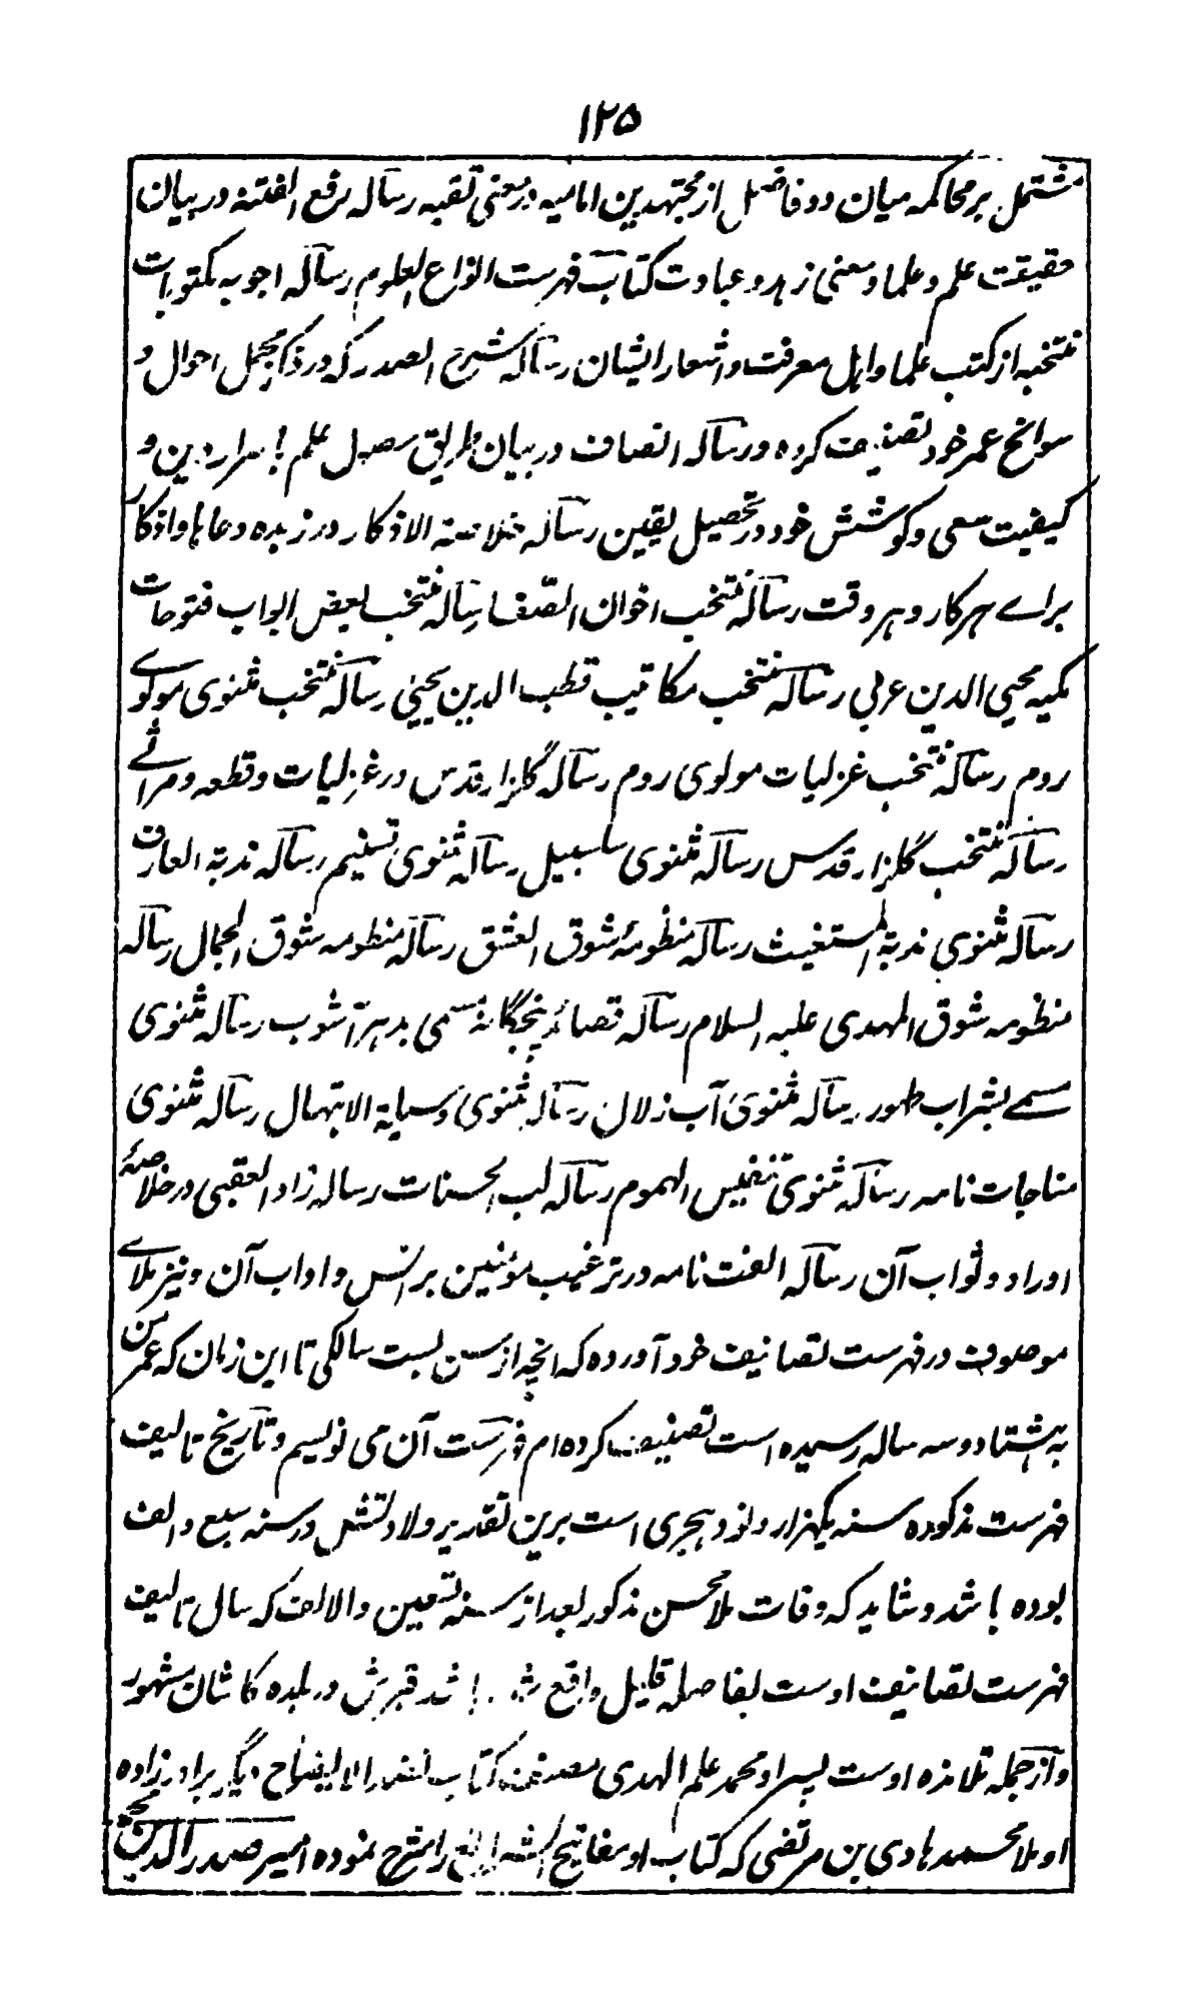 ۱۲۵
مشتمل بر محاکمه میان دو فاضل از مجتهدین امامیه در معنی تفقه رساله رفع الفتنه در بیان
حقیقت علم و علما و معنی زهد و عبادت کتاب فهرست انواع العلوم رساله اجوبه مکتوبات
منتخبه از کتب علما و اهل معرفت و اشعار ایشان رساله شرح الصدر که در ذکر مجمل احوال و
سوانح عمر خود تصنیف کرده و رساله انصاف در بیان طریق حصول علم باسرار دین و
کیفیت سعی و کوشش خود در تحصیل یقین رساله خلاصة الاذکار در زبده دعاها و اذکار
برای هر کار و هر وقت رساله منتخب اخوان الصفا رساله منتخب بعض ابواب فتوحات
مکیه محیی الدین عربی رساله منتخب مکاتیب قطب الدین یحیی رساله منتخب مثنوی مولوے
روم رساله منتخب غزلیات مولوی روم رساله گلزار قدس در غزلیات و قطعه و مراثے
رساله منتخب گلزار قدس رساله مثنوی سلسبیل رساله مثنوی تسنیم رساله ندبة العارف
رساله مثنوی ندبة المستغیث رساله منظومۀ شوق العشق رساله منظومه شوق الجمال رساله
منظومه شوق المهدی علیه السلام رساله قصائد پنجگانۀ مسمی بدهر آشوب رساله مثنوی
مسمے بشراب طهور رساله مثنوی آب زلال رساله مثنوی وسیلة الابتهال رساله مثنوی
مناجات نامه رساله مثنوی تنفیس الهموم رساله لب الحسنات رساله زاد العقبی در خلاصۀ
اوراد و ثواب آن رساله الفت نامه در ترغیب مؤمنین بر انس و اداب آن و نیز ملاے
موصوف در فهرست تصانیف خود آورده که انچه از سن بست سالگی تا این زمان که عمر من
به هشتاد و سه ساله رسیده است تصنیف کرده‌ام فهرست آن می نویسم و تاریخ تالیف
فهرست مذکوره سنه یکهزار و نود هجری است برین تقدیر ولادتش در سنه سبع و الف
بوده باشد و شاید که وفات ملا محسن مذکور بعد از سنه تسعین و الالف که سال تالیف
فهرست تصانیف اوست بفاصله قلیل واقع شده باشد قبرش در بلده کاشان مشهور
و از جمله تلامذه اوست پسر او محمد علم الهدی مصنف کتاب نضد الایضاح دیگر برادرزاده
او ملا محمد هادی بن مرتضی که کتاب او مفاتیح الشرایع را شرح نموده امیر صدر الدین